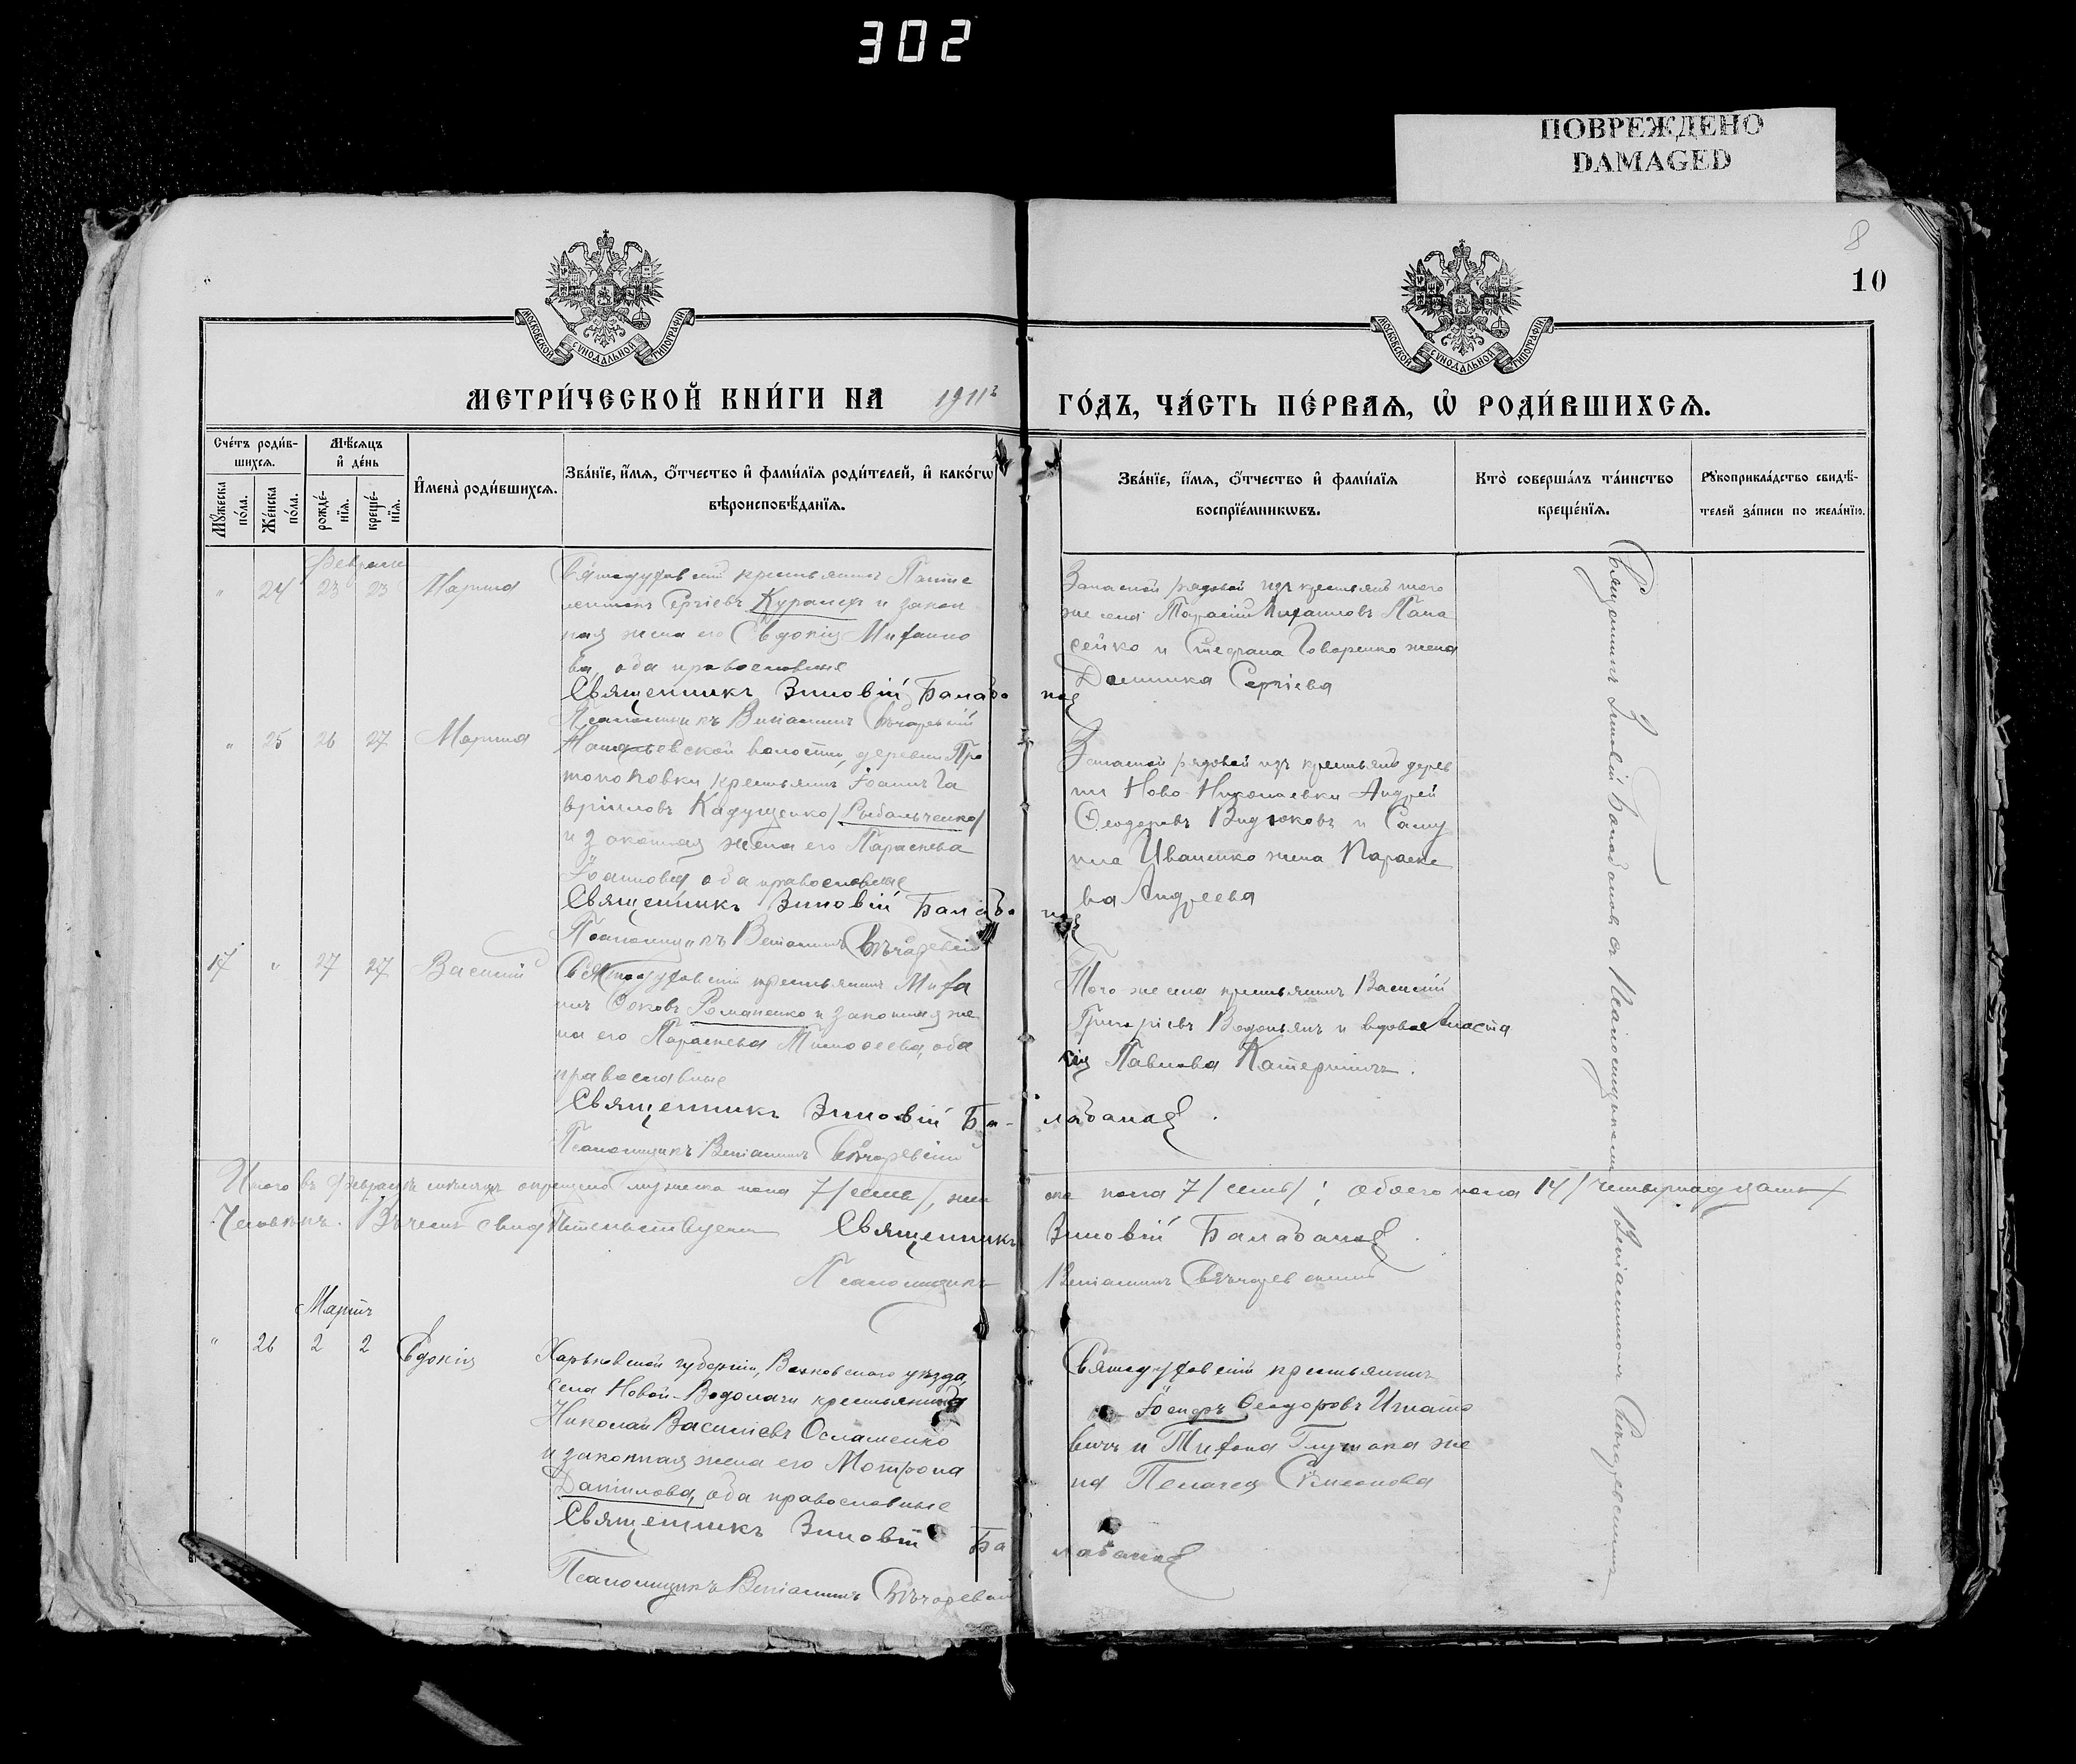 302
ПОВРЕЖДЕНО
DAMAGED
8
10
МОСКОВСКОЙ СУНОДАЛЬНОЙ ТИПОГРАФІИ
МОСКОВСКОЙ СУНОДАЛЬНОЙ ТИПОГРАФІИ
МЕТРИ́ЧЕСКОЙ КНИ́ГИ НА 1911 г
ГО́ДЪ, ЧА́СТЬ ПЕ́РВАѦ, Ѡ҆ РОДИ́ВШИХСѦ.
Сче́тъ роди́в-
шихсѧ.
Мꙋ́жеска
по́ла.
Же́нска
по́ла.
Мѣ́сѧцъ
и҆ де́нь
рожде́-
нїѧ.
креще́-
нїѧ.
И҆мена̀ роди́вшихсѧ.
Зва́нїе, и҆́мѧ, ѻ҆́тчество и҆ фами́лїѧ роди́телей, и҆ како́гѡ
вѣроисповѣ́данїѧ.
Зва́нїе, и҆́мѧ, ѻ҆́тчество и҆ фами́лїѧ
воспрїе́мникѡвъ.
Кто̀ соверша́лъ та́инство
креще́нїѧ.
Рꙋкоприкла́дство свидѣ́-
телей за́писи по жела́нїю.
Февраль
" 24 23 23 Марина
Святодуховскій крестьянинъ Панте
леимонъ Сергіевъ и закон
ная жена его Евдокія Михаило
ва, оба православные
Священникъ Зиновій Балабановъ
Псаломщикъ Веніаминъ
Запасной рядовой изъ крестьянъ того
же села Тарасій Михаиловъ Пана
сейко и Стефана Говоренко жена
Домника Сергіева
" 25 26 27 Марина
волости, деревни Про
топоповки крестьянинъ Іоаннъ Га
вріиловъ /Рыбальченко/
и законная жена его Параскева
Іоаннова оба православные
Священникъ Зиновій Балабановъ
Псаломщикъ Веніаминъ
Запасной рядовой изъ крестьянъ дерев
ни Ново-Николаевки Андрей
Ѳеодоровъ и Саму
ила Иваненко жена Параске
ва Андреева
17 " 27 27 Василій
Святодуховскій крестьянинъ Миха
илъ Романенко и законная же
на его Параскева Тимоѳеева, оба
православные
Священникъ Зиновій Балабановъ.
Псаломщикъ Веніаминъ
Того же села крестьянинъ Василій
Григоріевъ Водопьянъ и вдова Анаста
сія Павлова
Итого въ Февралѣ мѣсяцѣ окрещено мужеска пола 7 /семь/, жен
ска пола 7 /семь/; обоего пола 14 /четырнадцать/
человѣкъ. Въ чемъ свидѣтельствуемъ Священникъ Зиновій Балабановъ.
Псаломщикъ Веніаминъ
Мартъ
" 26 2 2 Евдокія
Харьковской губерніи, Валковского уѣзда,
села Новой-Водолаги крестьянинъ
Николай Василіевъ Осламенко
и законная жена его Матрона
Даніилова, оба православные
Священникъ Зиновій Балабановъ
Псаломщикъ Веніаминъ
Святодуховскій крестьянинъ
Іосифъ Ѳеодоровъ Игнато
вичъ и же
на Пелагея
Священникъ Зиновій Балабановъ съ Псаломщикомъ Веніаминомъ